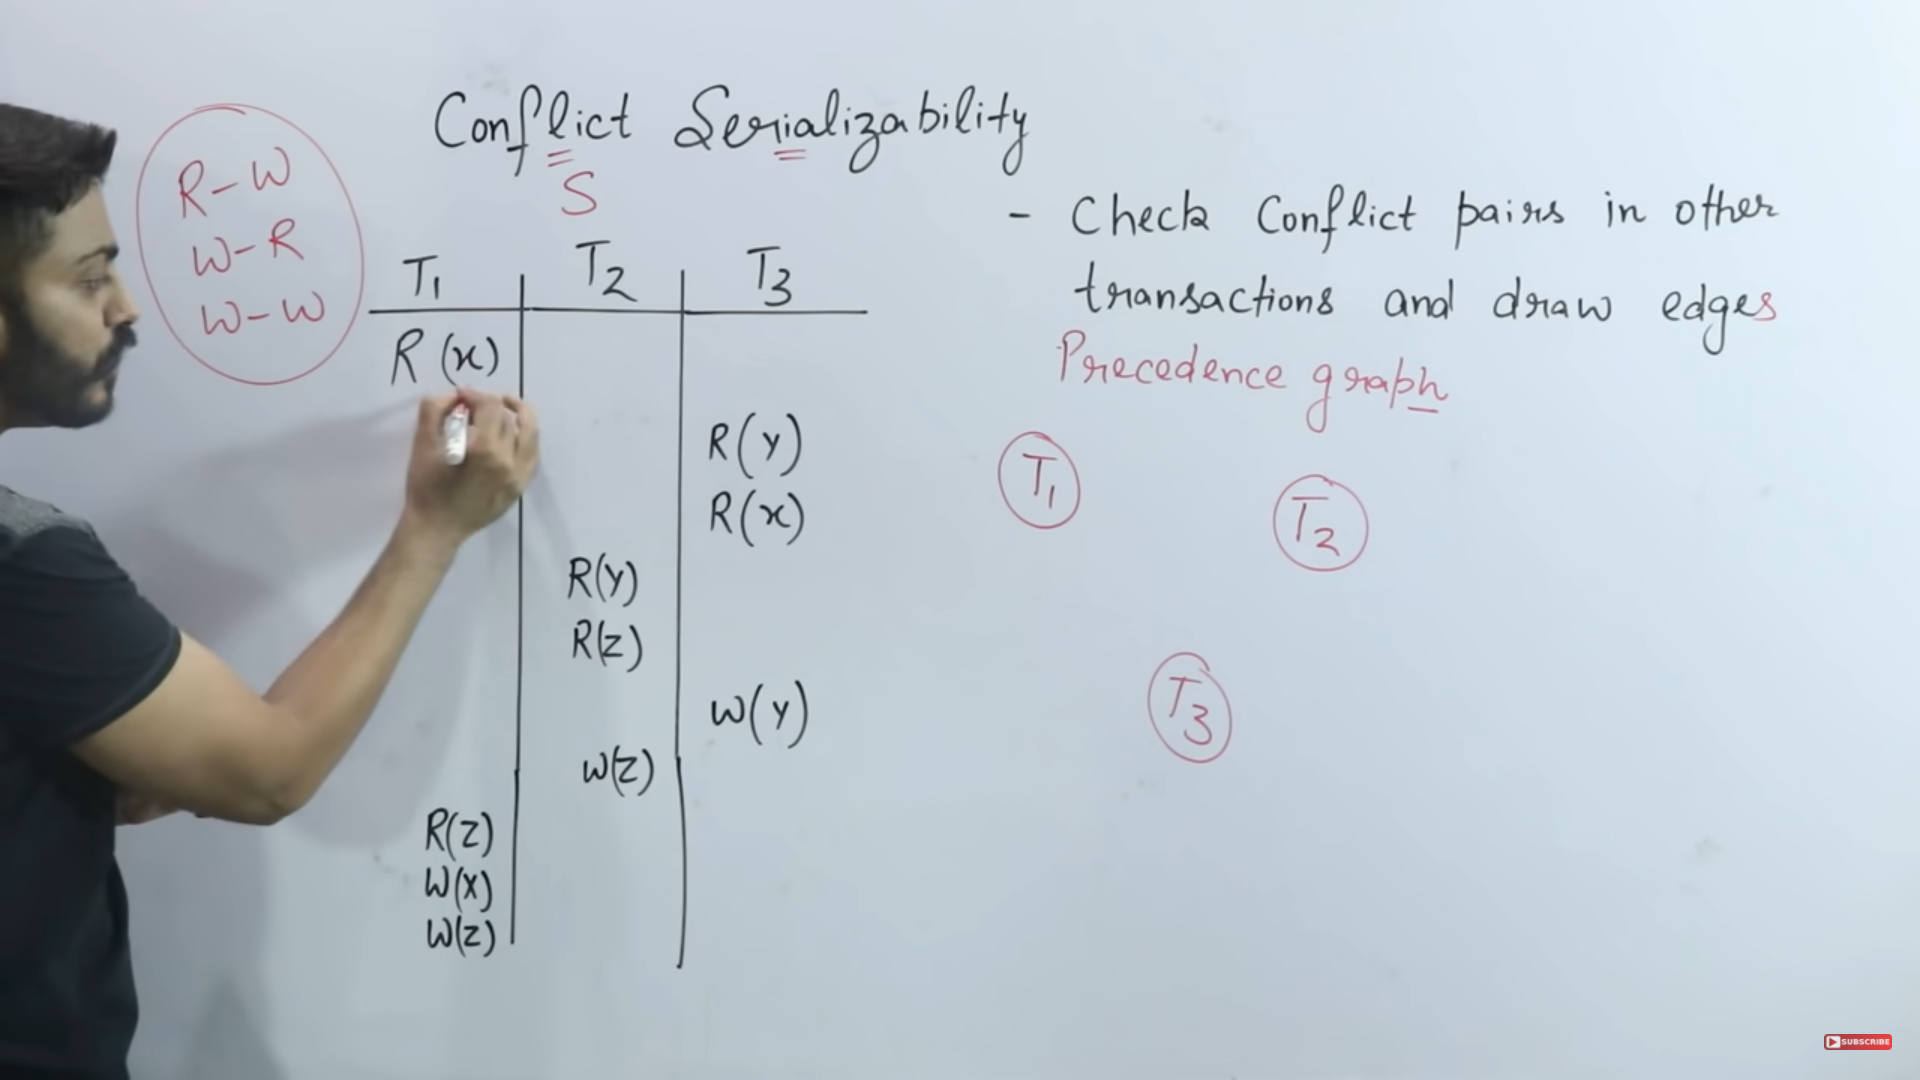 Conflict Serializability
S
R-W
W-R
W-W
T1 T2 T3
R(x)
R(y)
R(x)
R(y)
R(z)
W(y)
W(z)
R(z)
W(x)
W(z)
- Check Conflict pairs in other
transactions and draw edges
Precedence graph
T1
T2
T3
SUBSCRIBE